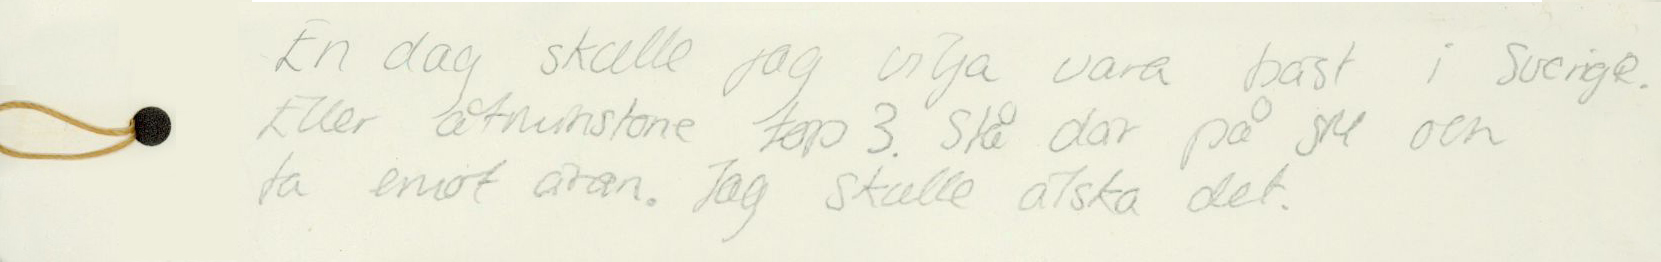 En dag skulle jag vilja vara bäst i Sverige.
Eller åtminstone top 3. Stå där på SM och
ta emot äran. Jag skulle älska det.